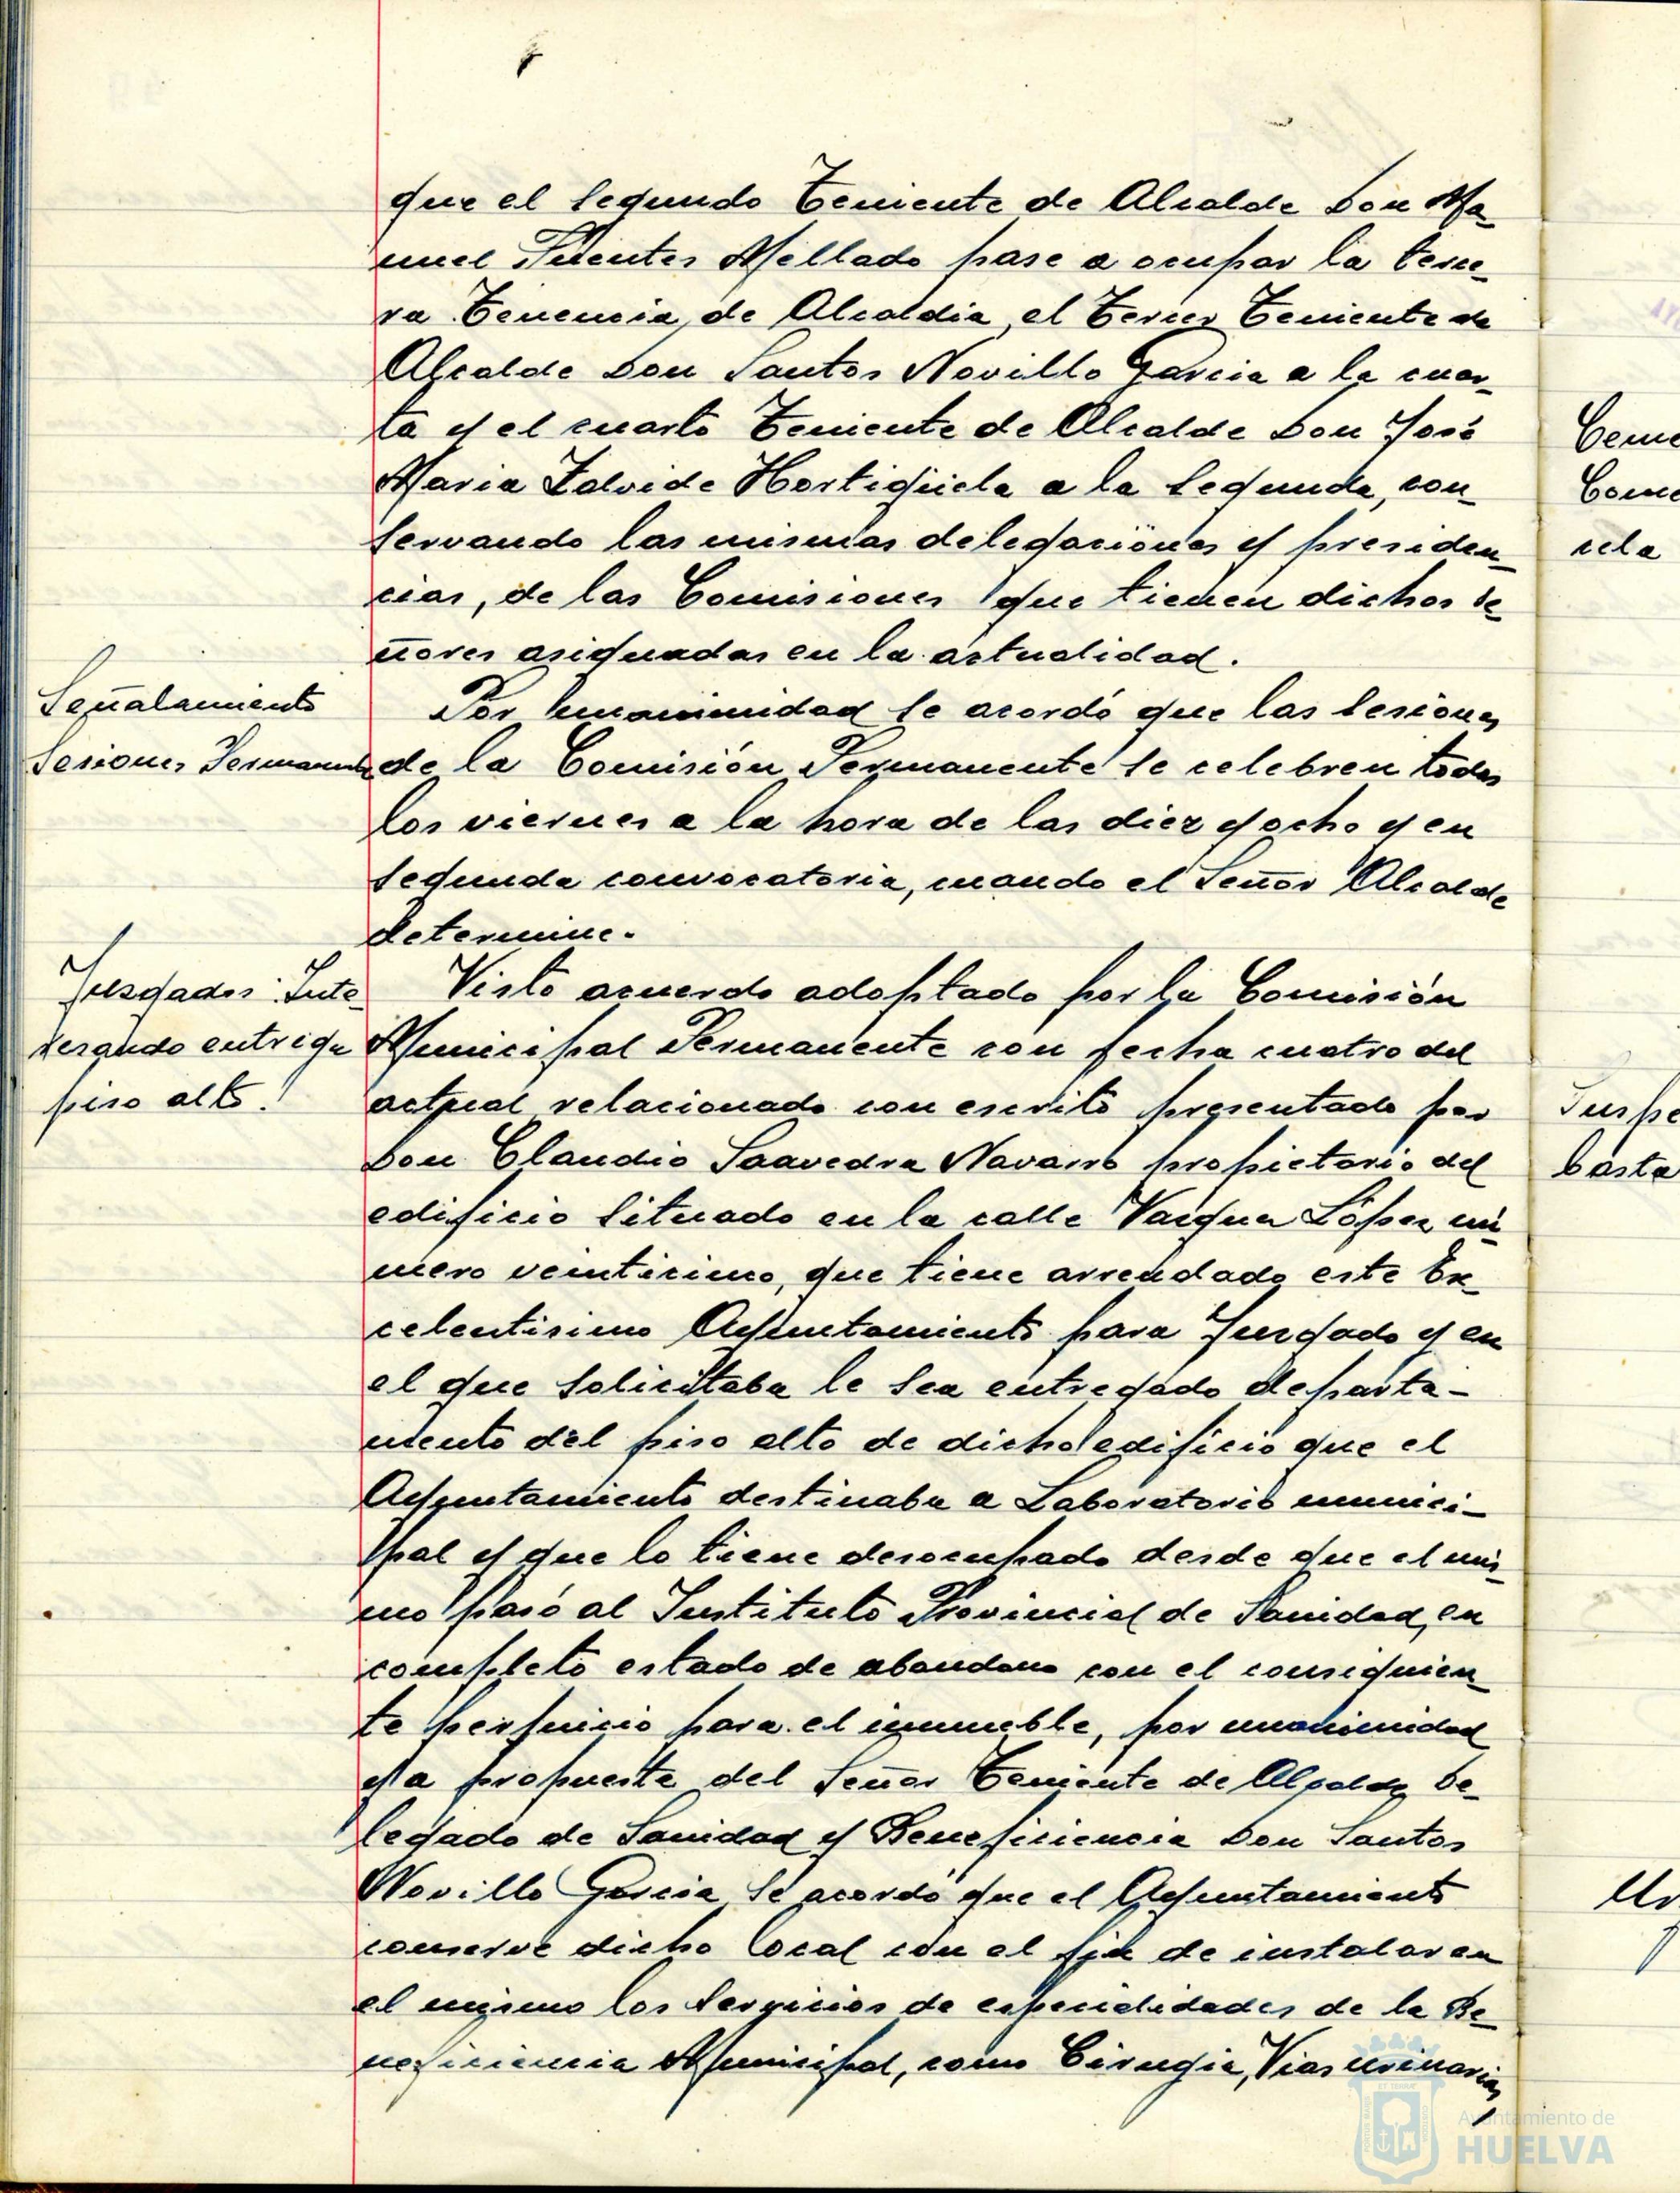 que el segundo Teniente de Alcalde Don Ma-
nuel Fuentes Mellado pase a ocupar la terce-
ra Tenencia de Alcaldia, el Tercer Teniente de
Alcalde Don Santos Novillo Garcia a la cuar-
ta y el cuarto Teniente de Alcalde Don José
Maria Zalvide Hortigüela a la segunda, con-
servando las mismas delegaciones y presiden-
cias, de las Comisiones que tienen dichos se-
ñores asignadas en la actualidad.
Señalamiento
Sesiones Permanente
Por unanimidad se acordó que las sesiones
de la Comisión Permanente se celebren todos
los viernes a la hora de las diez y ocho y en
segunda convocatoria, cuando el Señor Alcalde
determine.
Juzgados: Inte-
resando entrega
piso alto.
Visto acuerdo adoptado por la Comisión
Municipal Permanente con fecha cuatro del
actual relacionado con escrito presentado por
Don Claudio Saavedra Navarro propietario del
edificio situado en la calle Vazquez López nú-
mero veinticinco, que tiene arrendado este Ex-
celentisimo Ayuntamiento para Juzgado y en
el que solicitaba le sea entregado departa-
mento del piso alto de dicho edificio que el
Ayuntamiento destinaba a Laboratorio munici-
pal y que lo tiene desocupado desde que el mis-
mo pasó al Instituto Provincial de Sanidad, en
completo estado de abandono con el consiguien-
te perjuicio para el inmueble, por unanimidad
y a propuesta del Señor Teniente de Alcalde De-
legado de Sanidad y Beneficiencia Don Santos
Novillo Garcia se acordó que el Ayuntamiento
conserve dicho local con el fin de instalar en
el mismo los servicios de especialidades de la Be-
neficiencia Municipal, como Cirugia, Vias urinarias,
Ceme
Come
cela
basta
Ayuntamiento de
HUELVA